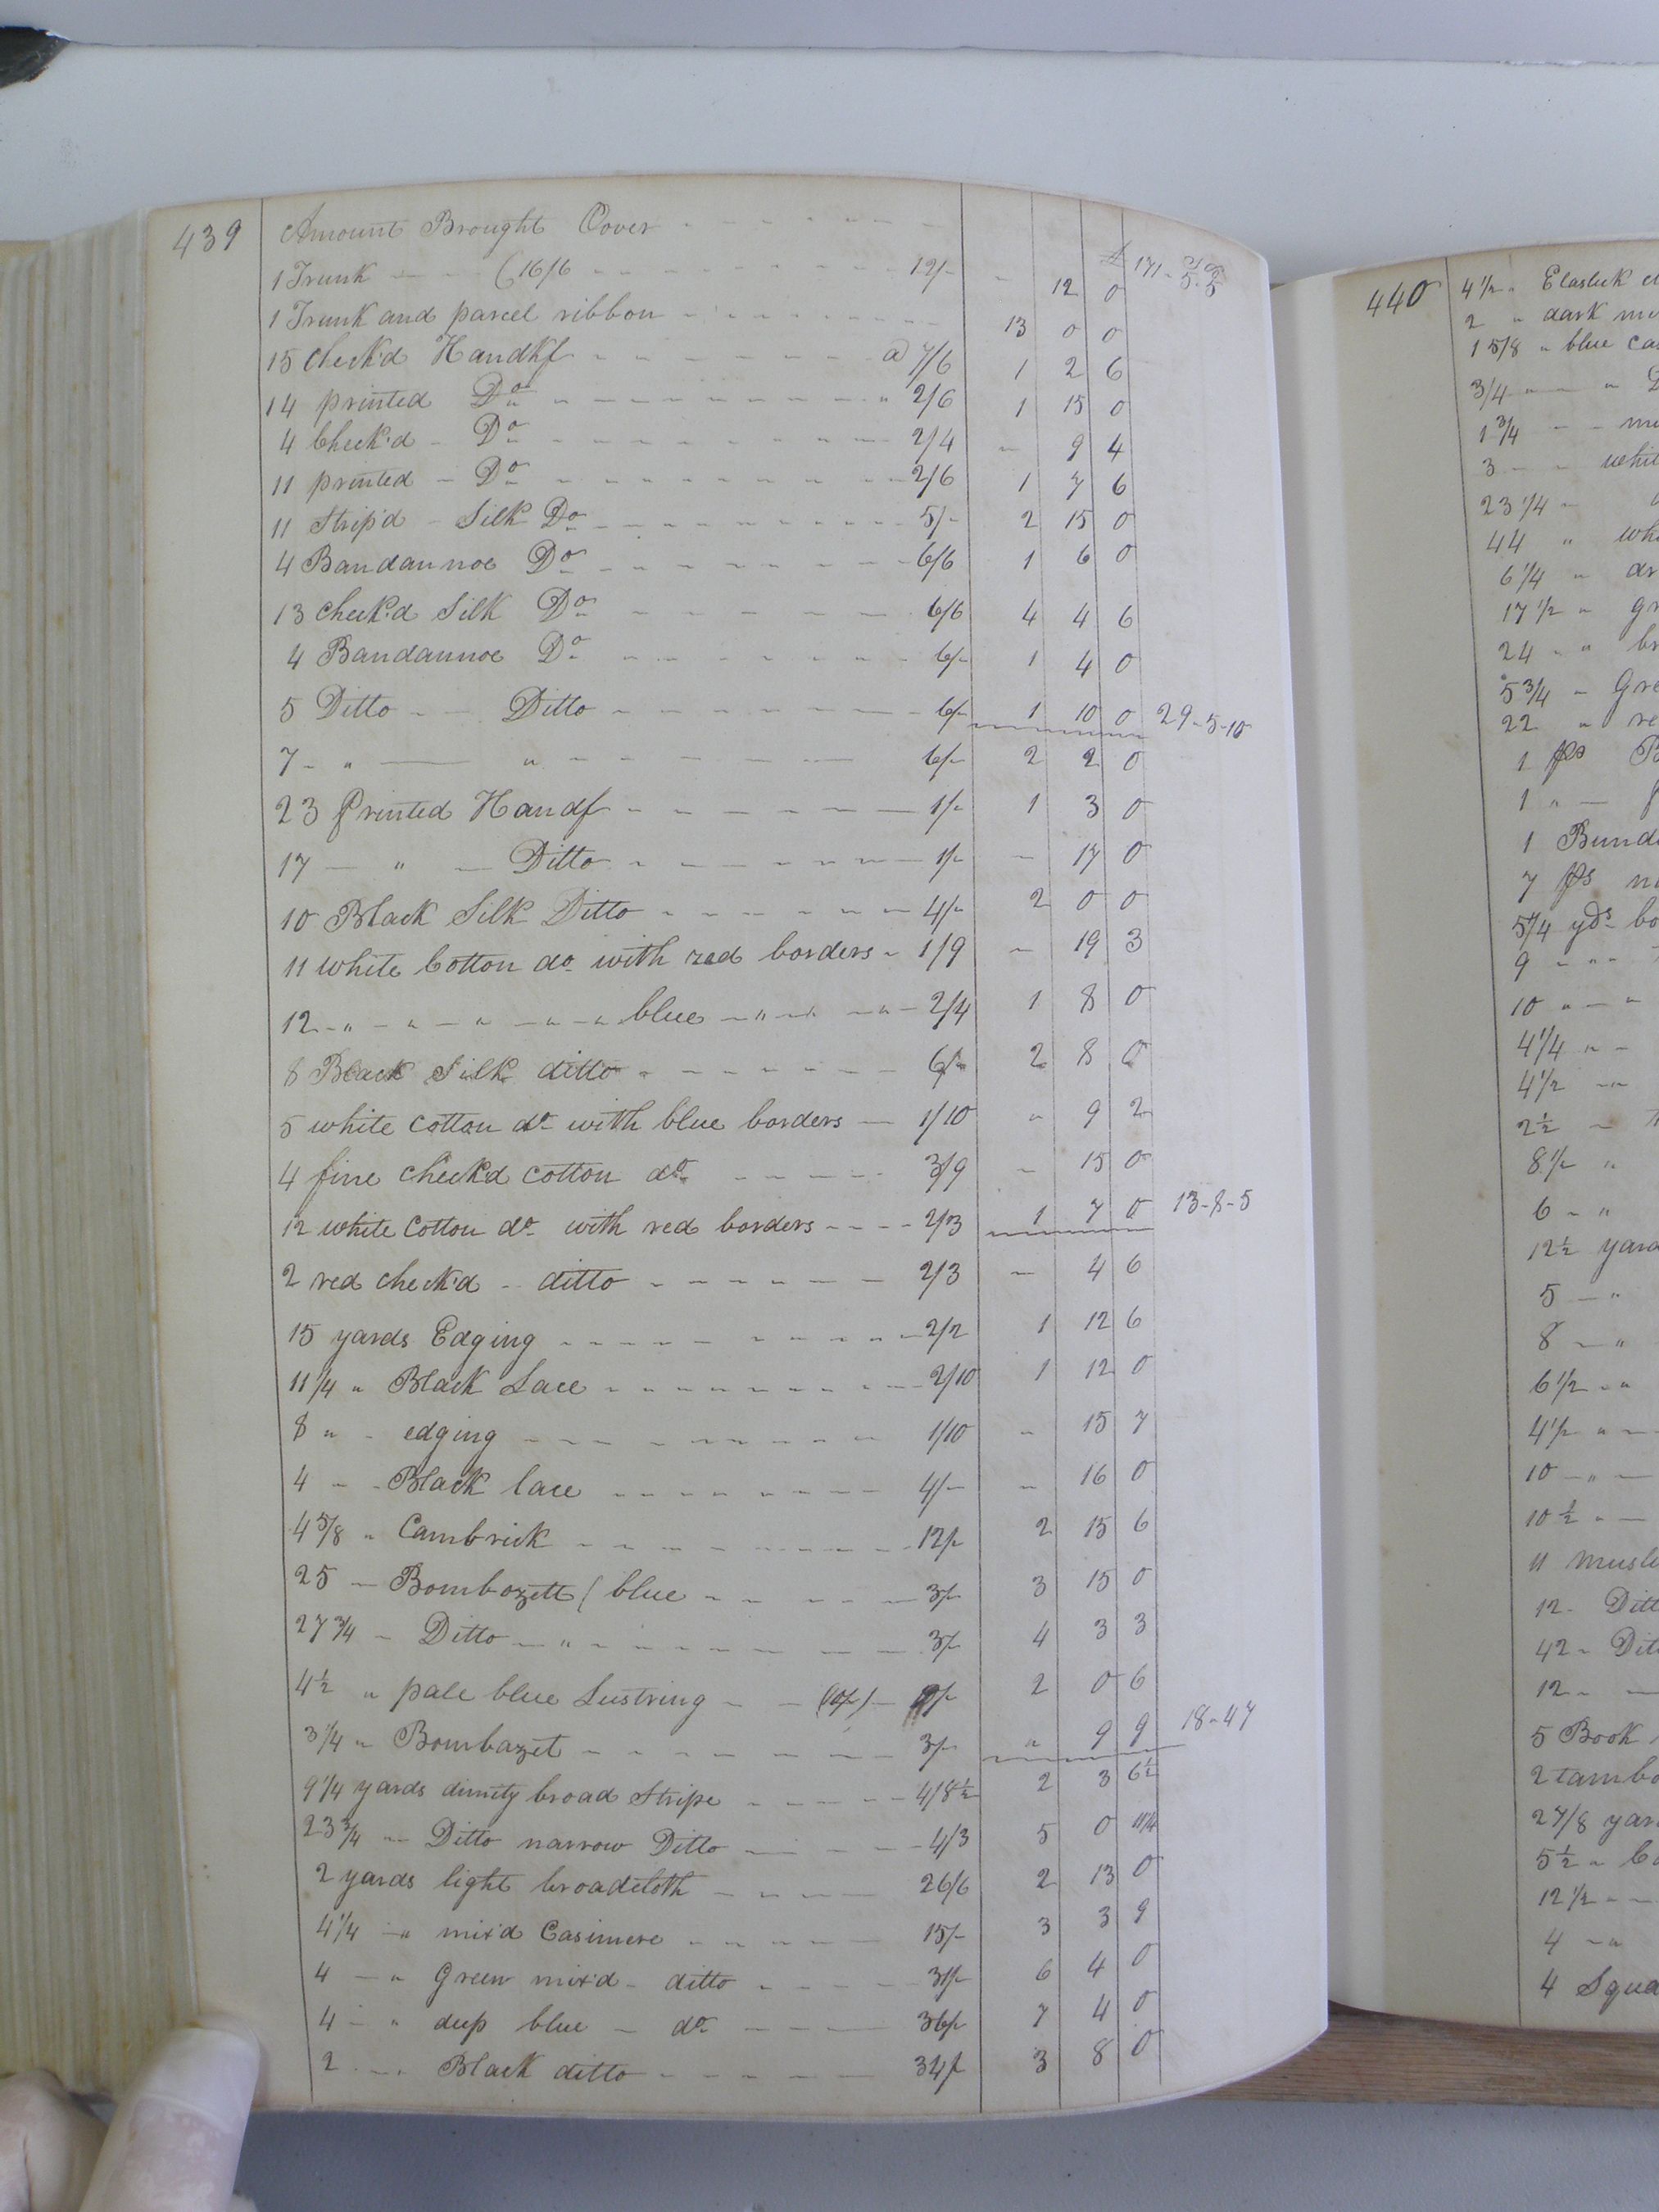 439 Amount Brought Over
1 Trunk (16/6 12/- - 12 0 £ 171-5-5
1 Trunk and parcel ribbon 13 0 0
15 check'd Handkf a 7/6 1 2 6
14 printed Do " 2/6 1 15 0
4 Check'd Do 2/4 - 9 4
11 printed Do 2/6 1 7 6
11 Strip'd Silk Do 5/- 2 15 0
4 Bandannoe Do 6/6 1 6 0
13 check'd Silk Do 6/6 4 4 6
4 Bandannoe Do 6/- 1 4 0
5 Ditto Ditto 6/- 1 10 0 29-5-10
7 " " 6/- 2 2 0
23 Printed Handf 1/- 1 3 0
17 " Ditto 1/- - 17 0
10 Black Silk Ditto 4/- 2 0 0
11 white Cotton do with red borders 1/9 - 19 3
12 " " " " " blue " " 2/4 1 8 0
8 Black Silk ditto 6/- 2 8 0
5 white cotton do with blue borders 1/10 " 9 2
4 fine check'd cotton do 3/9 - 15 0
12 white Cotton do with red borders 2/3 1 7 0 13-8-5
2 red check'd ditto 2/3 - 4 6
15 yards Edging 2/2 1 12 6
11 1/4 " Black Lace 2/10 1 12 0
8 " edging 1/10 " 15 7
4 - Black lace 4/- " 16 0
4 5/8 " Cambrick 12/- 2 15 6
25 - Bombozett ( blue 3/- 3 15 0
27 3/4 - Ditto " 3/- 4 3 3
4 1/2 " pale blue Lustring 9/- 2 0 6
3 1/4 " Bombazet 3/- " 9 9 18-4 7
9 1/4 yards dimity broad Stripe 4/8 1/2 2 3 6 1/2
23 3/4 " Ditto narrow Ditto 4/3 5 0 11 1/4
2 yards light broadcloth 26/6 2 13 0
4 1/4 " mix'd Casimere 15/- 3 3 9
4 - " Green mix'd - ditto 31/- 6 4 0
4 - " deep blue - do 36/- 7 4 0
2 - Black ditto 34/- 3 8 0
440 4 1/2 " Elastick
2 " dark
1 5/8 " blue
3/4 " "
1 3/4 - -
3 - -
23 1/4 -
44 "
6 1/4 "
17 1/2 "
24 - "
5 3/4 -
22 "
1 ps
1 " -
1
7 ps
5 1/4 yds
9 - " "
10 " - "
4 1/4 " -
4 1/2 - "
2 1/2 -
8 1/2 "
6 - "
12 1/2
5 - "
8 - "
6 1/2 - "
4 1/2 " -
10 - " -
10 1/2 " -
11
12 -
42 -
12 -
5 Book
2
2 7/8
5 1/2 "
12 1/2 - -
4 - "
4